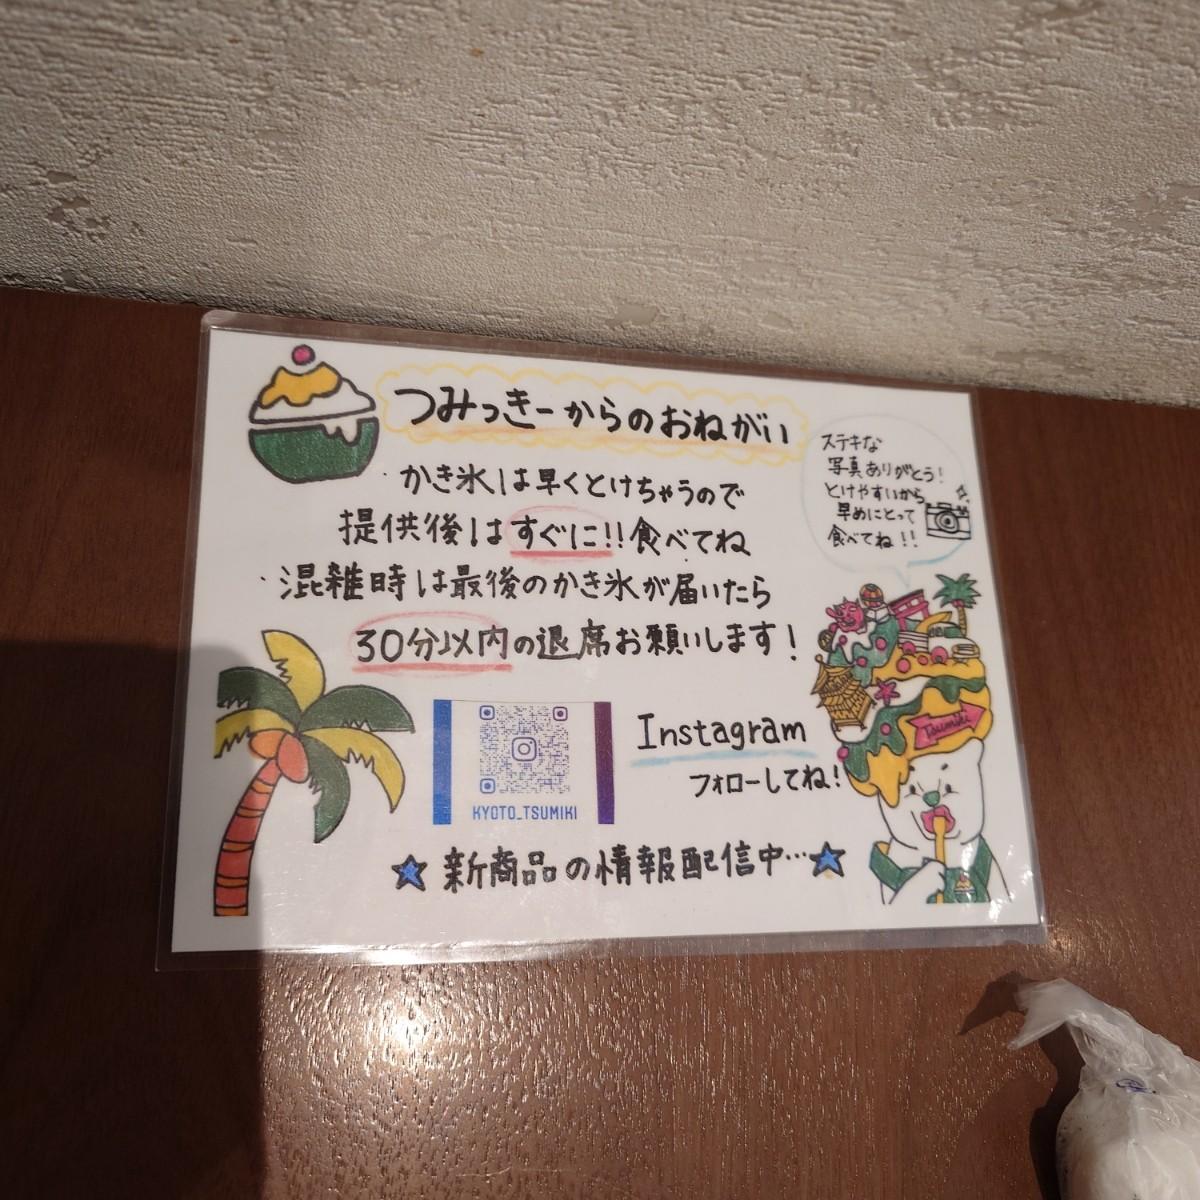 つみっきーからのおねがい
・かき氷は早くとけちゃうので
提供後はすぐに!!食べてね
・混雑時は最後のかき氷が届いたら
30分以内の退席お願いします!
ステキな
写真ありがとう!
とけやすいから
早めにとって
食べてね!!
Tsumiki
Instagram
フォローしてね!
KYOTO_TSUMIKI
★新商品の情報配信中…★